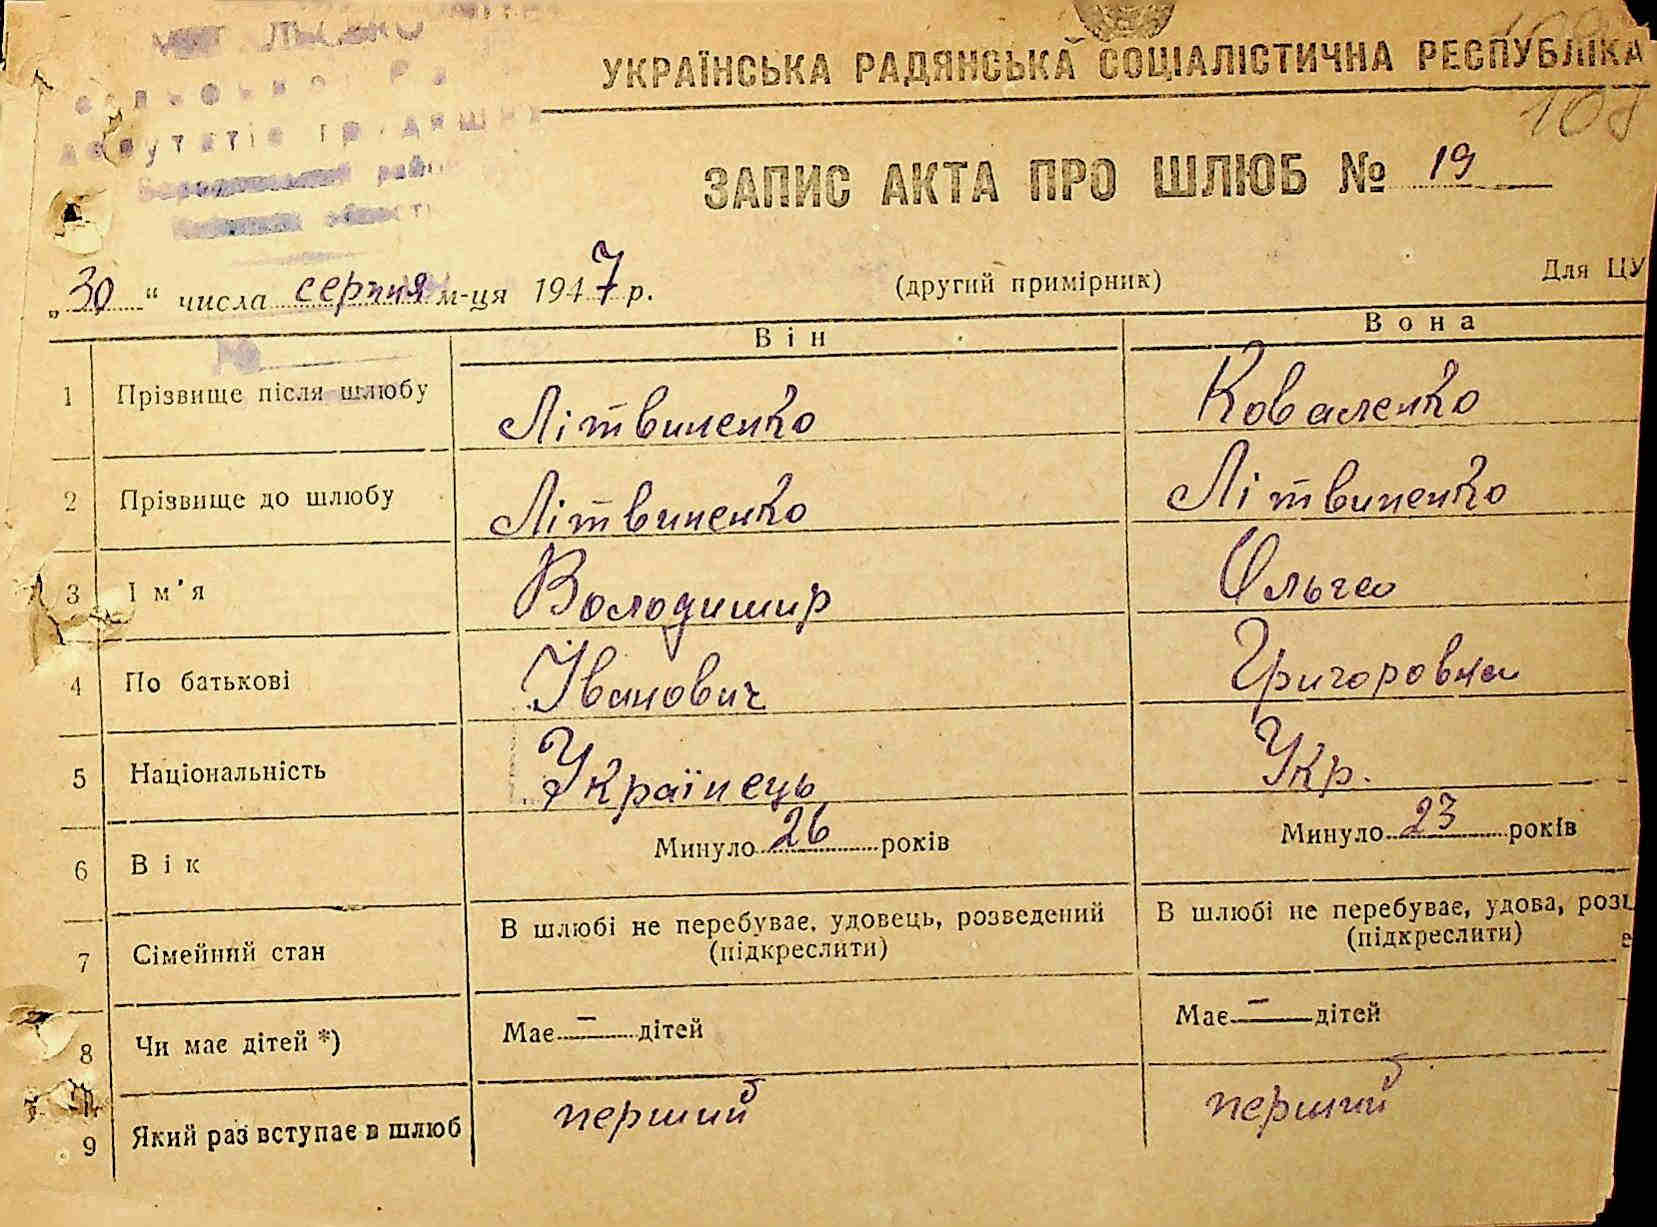 УКРАЇНСЬКА РАДЯНСЬКА СОЦІАЛІСТИЧНА РЕСПУБЛІКА
108
ЗАПИС АКТА ПРО ШЛЮБ № 19
„30“ числа серпня м-ця 1947 р.
(другий примірник)
Для ЦУ
Він
Вона
1 Прізвище після шлюбу Літвиненко Коваленко
2 Прізвище до шлюбу Літвиненко Літвиненко
3 Ім'я Володимир Ольга
4 По батькові Іванович Григоровна
5 Національність Українець Укр.
6 Вік Минуло 26 років Минуло 23 років
7 Сімейний стан В шлюбі не перебуває, удовець, розведений (підкреслити) В шлюбі не перебуває, удова, (підкреслити)
8 Чи має дітей *) Має — дітей Має — дітей
9 Який раз вступає в шлюб перший перший